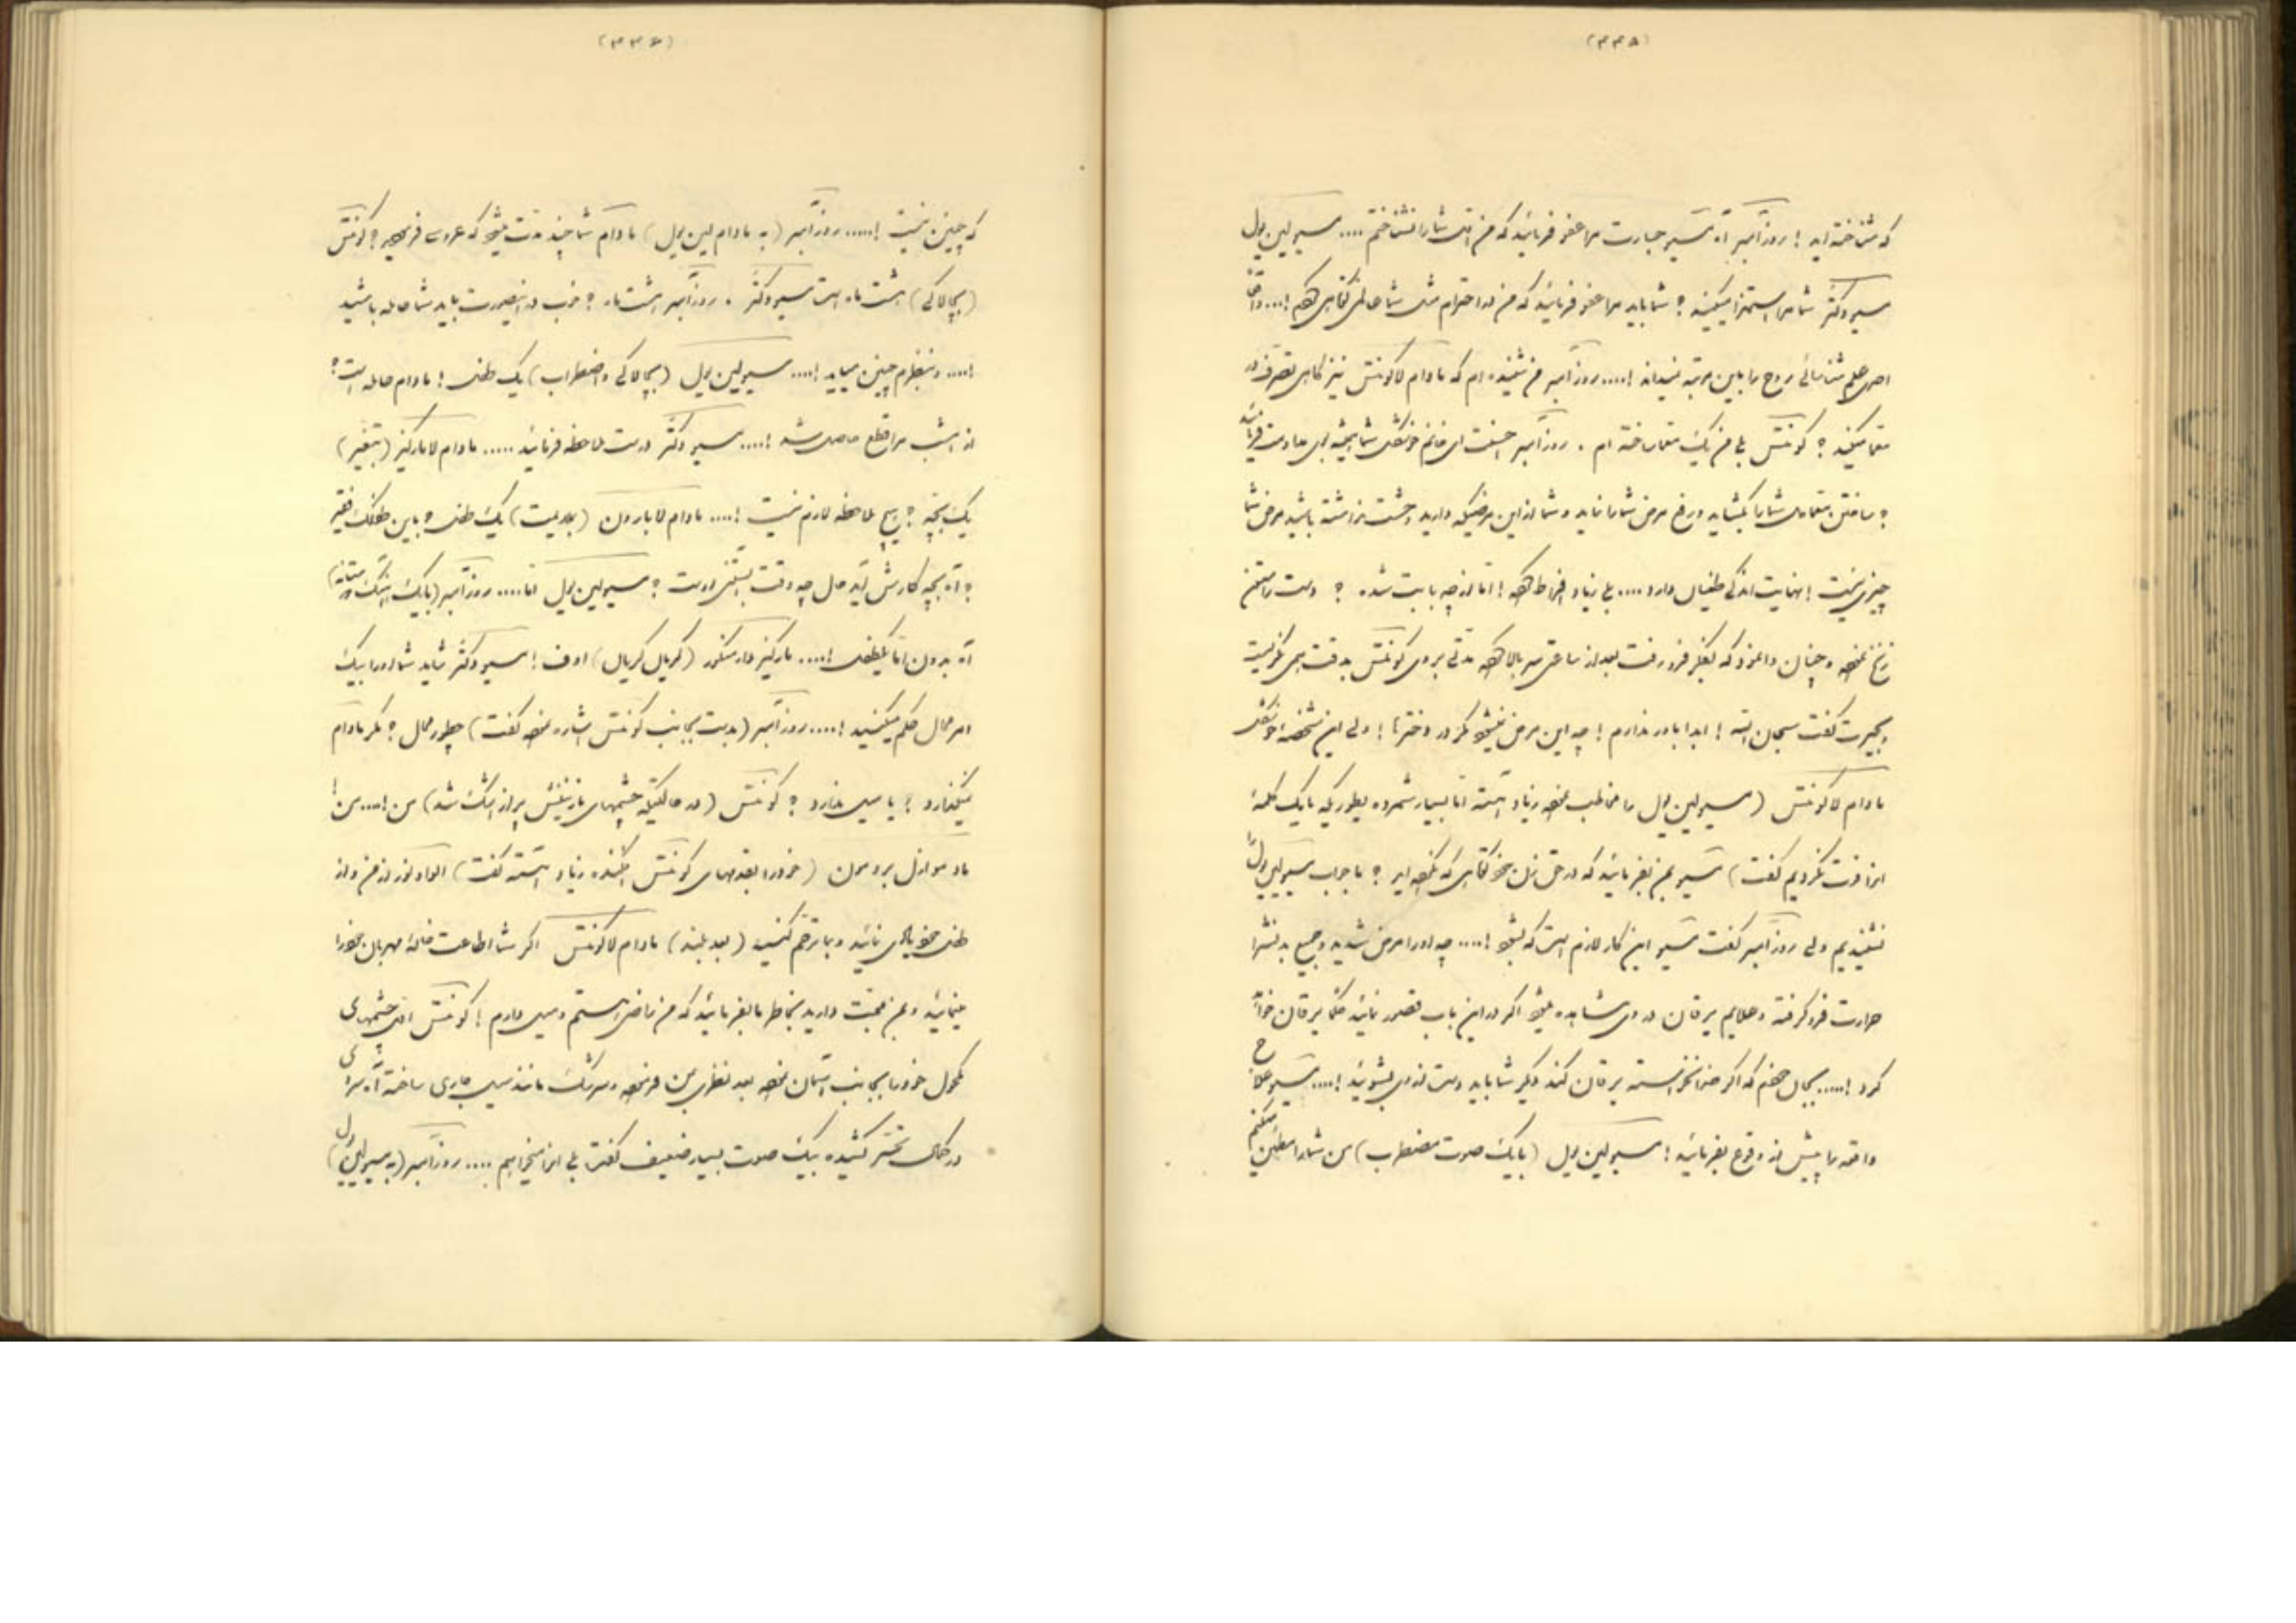 (۳۳۵)
که شناخته اید ! روزآمبر آه مسیو جسارت مرا عفو فرمائید که من اول شما را نشناختم .... مسیو لین یول
مسیو دکتر شما مرا استهزا میکنید ؟ شما باید مرا عفو فرمائید که من در احترام مثل شما
علم شناسائی روح را باین مرتبه نمیداند !.... روزآمبر من شنیده ام که مادام لاکونتس نیز گاهی تصرف در
معما میکنید ؟ کونتس بلی من یک معما ساخته ام . روزآمبر
؟ ساختن معما شما را بکشاید و رفع مرض شما را نماید و شما از این مرضیکه دارید وحشت نداشته باشید مرض شما
چیزی نیست ! نهایت اندکی طغیان دارد .... بلی زیاد افراط ! اما از چه بابت شده ؟ دست را ستون
زنخ نموده و چنان وانمود که بفکر فرو رفت بعد از ساعتی سر بالا کرده مدتی بروی کونتس بدقت نگریست
و بحیرت گفت سبحان الله ! ابدا باور ندارم ! چه این مرض نمیشود مگر در دخترها ! ولی این شخصه
مادام لاکونتس (مسیو لین یول را مخاطب نموده زیاد آهسته اما بسیار شمرده بطوریکه ما یک کلمهٔ
آنرا فوت نکردیم گفت) مسیو بمن بفرمائید که در حق زن خود کوتاهی که نکرده اید ؟ ما جواب مسیو لین یول را
نشنیدیم ولی روزآمبر گفت مسیو این کار لازم است که بشود !.... چه او را مرض شدید و جمیع بدنش را
حرارت فرو گرفته و علایم یرقان در وی مشاهده میشود اگر در این باب قصور نمائید حکماً یرقان خواهد
کرد !..... بهرحال که اگر خدا نخواسته یرقان کند دیگر شما باید دست از وی بشوئید !.... مسیو علاج
واقعه را پیش از وقوع بفرمائید ! مسیو لین یول (با یک صوت مضطرب) من شما را مطمئن میکنم
(۳۳۶)
که چنین نیست !..... روزآمبر (به مادام لین یول) مادام شما چند مدت میشود که عروسی فرموده اید ؟ کونتس
(بچالاکی) هشت ماه است مسیو دکتر . روزآمبر هشت ماه ؟ خوب در اینصورت باید شما حامله باشید
!.... و بنظرم چنین میاید !.... مسیو لین یول (بچالاکی و اضطراب) یک طفل ! مادام حامله است ؟
از امشب مرا قطع حاصل شد !.... مسیو دکتر درست ملاحظه فرمائید ..... مادام لامارکیز (بتغیر)
یک بچه ؟ هیچ ملاحظه لازم نیست !.... مادام لابارون (بملایمت) یک طفل ؟ باین طفلک فقیر
؟ آه بچه کارش آید حال چه وقت آبستنی اوست ؟ مسیو لین یول اما .... روزآمبر (با یک آهنگ دوستانه)
آه بدون اما یکطفل !.... مارکیز دارمنکور (گریان گریان) اوف ! مسیو دکتر شاید شما او را بیک
امر محال حکم میکنید !.... روزآمبر (بدست بجانب کونتس اشاره نموده گفت) چطور محال ؟ مگر مادام
نمیگذارد ؟ یا میل ندارد ؟ کونتس (در حالتیکه چشمهای نازنینش پر از اشک شد) من !.... من !
مادموازل بروسون (خود را بقدمهای کونتس افکنده زیاد آهسته گفت) الواد نور از من و از
طفل خودتان نمائید و بما ترحم کنید (بعد بلند) مادام لاکونتس اگر شما اطاعت خالهٔ مهربان خود را
مینمائید و بمن محبت دارید بخاطر ما بفرمائید که من راضی هستم و میل دارم ! کونتس چشمهای
مکحول خود را بجانب آسمان نموده بعد نظری بمن فرموده و سرشک مانند سیل جاری ساخته آه سردی
در کمال تحسر کشیده بیک صوت بسیار ضعیف گفت بلی آنرا میخواهم .... روزآمبر (به مسیو لین یول)